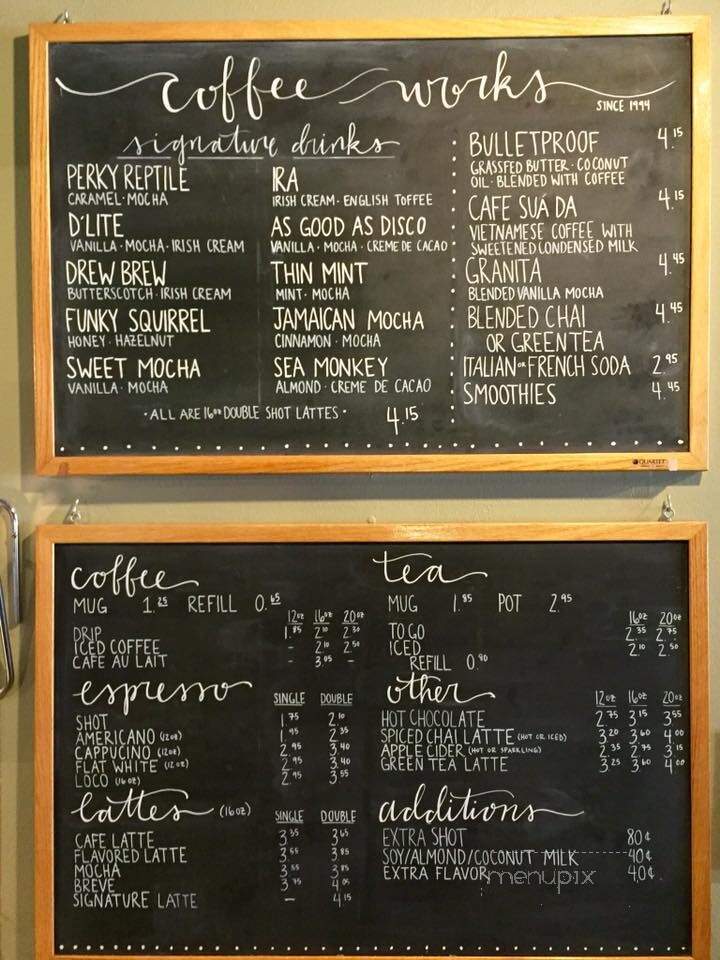 coffee works
SINCE 1994
signature drinks
PERKY REPTILE
CARAMEL · MOCHA
D'LITE
VANILLA · MOCHA · IRISH CREAM
DREW BREW
BUTTERSCOTCH · IRISH CREAM
FUNKY SQUIRREL
HONEY · HAZELNUT
SWEET MOCHA
VANILLA · MOCHA
IRA
IRISH CREAM · ENGLISH TOFFEE
AS GOOD AS DISCO
VANILLA · MOCHA · CREME DE CACAO
THIN MINT
MINT · MOCHA
JAMAICAN MOCHA
CINNAMON · MOCHA
SEA MONKEY
ALMOND · CREME DE CACAO
· ALL ARE 16oz DOUBLE SHOT LATTES · 4.15
BULLETPROOF 4.15
GRASSFED BUTTER · COCONUT
OIL · BLENDED WITH COFFEE
CAFE SUÁ DA 4.15
VIETNAMESE COFFEE WITH
SWEETENED CONDENSED MILK
GRANITA 4.45
BLENDED VANILLA MOCHA
BLENDED CHAI 4.45
OR GREEN TEA
ITALIAN OR FRENCH SODA 2.95
SMOOTHIES 4.45
QUARTET
coffee
MUG 1.25 REFILL 0.65
12oz 16oz 20oz
DRIP 1.85 2.10 2.30
ICED COFFEE - 2.10 2.50
CAFE AU LAIT - 3.05 -
espresso SINGLE DOUBLE
SHOT 1.75 2.10
AMERICANO (12oz) 1.95 2.35
CAPPUCINO (12oz) 2.95 3.40
FLAT WHITE (12oz) 2.95 3.40
LOCO (16oz) 2.95 3.55
lattes (16oz) SINGLE DOUBLE
CAFE LATTE 3.35 3.65
FLAVORED LATTE 3.55 3.85
MOCHA 3.55 3.85
BREVE 3.75 4.05
SIGNATURE LATTE - 4.15
tea
MUG 1.85 POT 2.95
16oz 20oz
TO GO 2.35 2.75
ICED 2.10 2.50
REFILL 0.90
other 12oz 16oz 20oz
HOT CHOCOLATE 2.75 3.15 3.55
SPICED CHAI LATTE (HOT OR ICED) 3.20 3.60 4.00
APPLE CIDER (HOT OR SPARKLING) 2.35 2.75 3.15
GREEN TEA LATTE 3.25 3.60 4.00
additions
EXTRA SHOT 80¢
SOY/ALMOND/COCONUT MILK 40¢
EXTRA FLAVOR 40¢
menupix